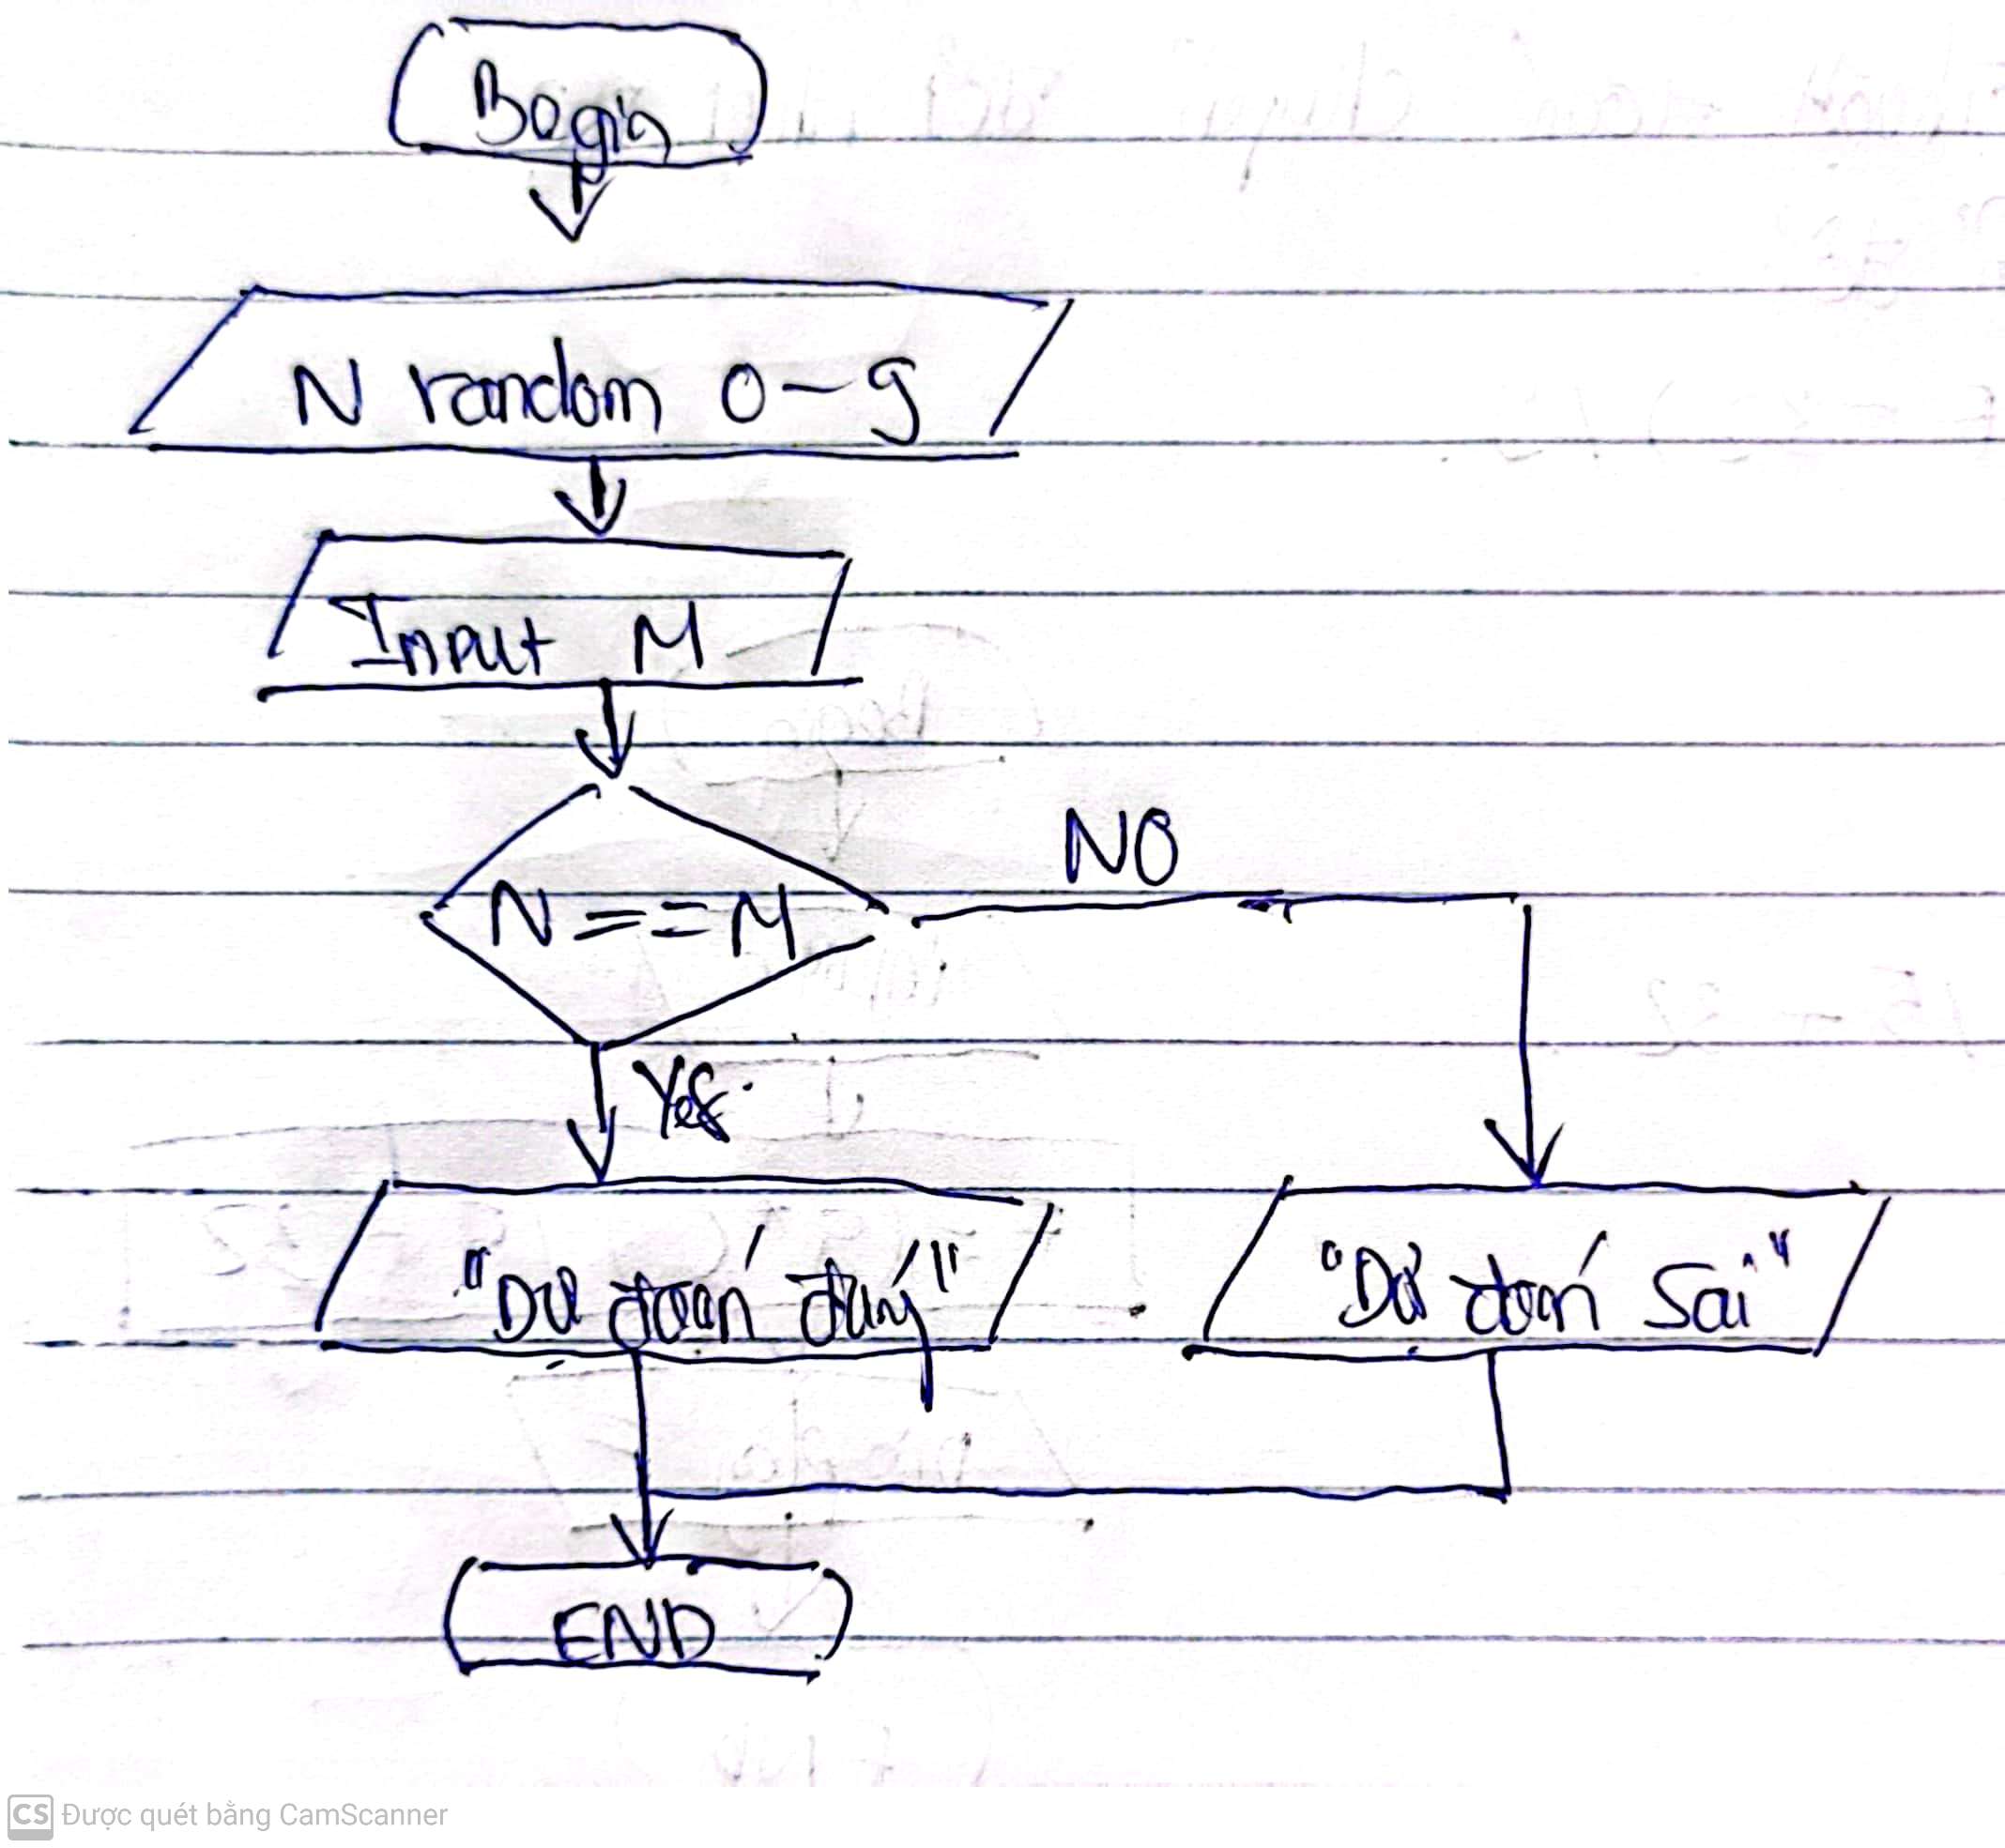 Begin
N random 0-9
Input M
N==M
NO
Yes
"Dự đoán đúng"
"Dự đoán sai"
END
CS Được quét bằng CamScanner